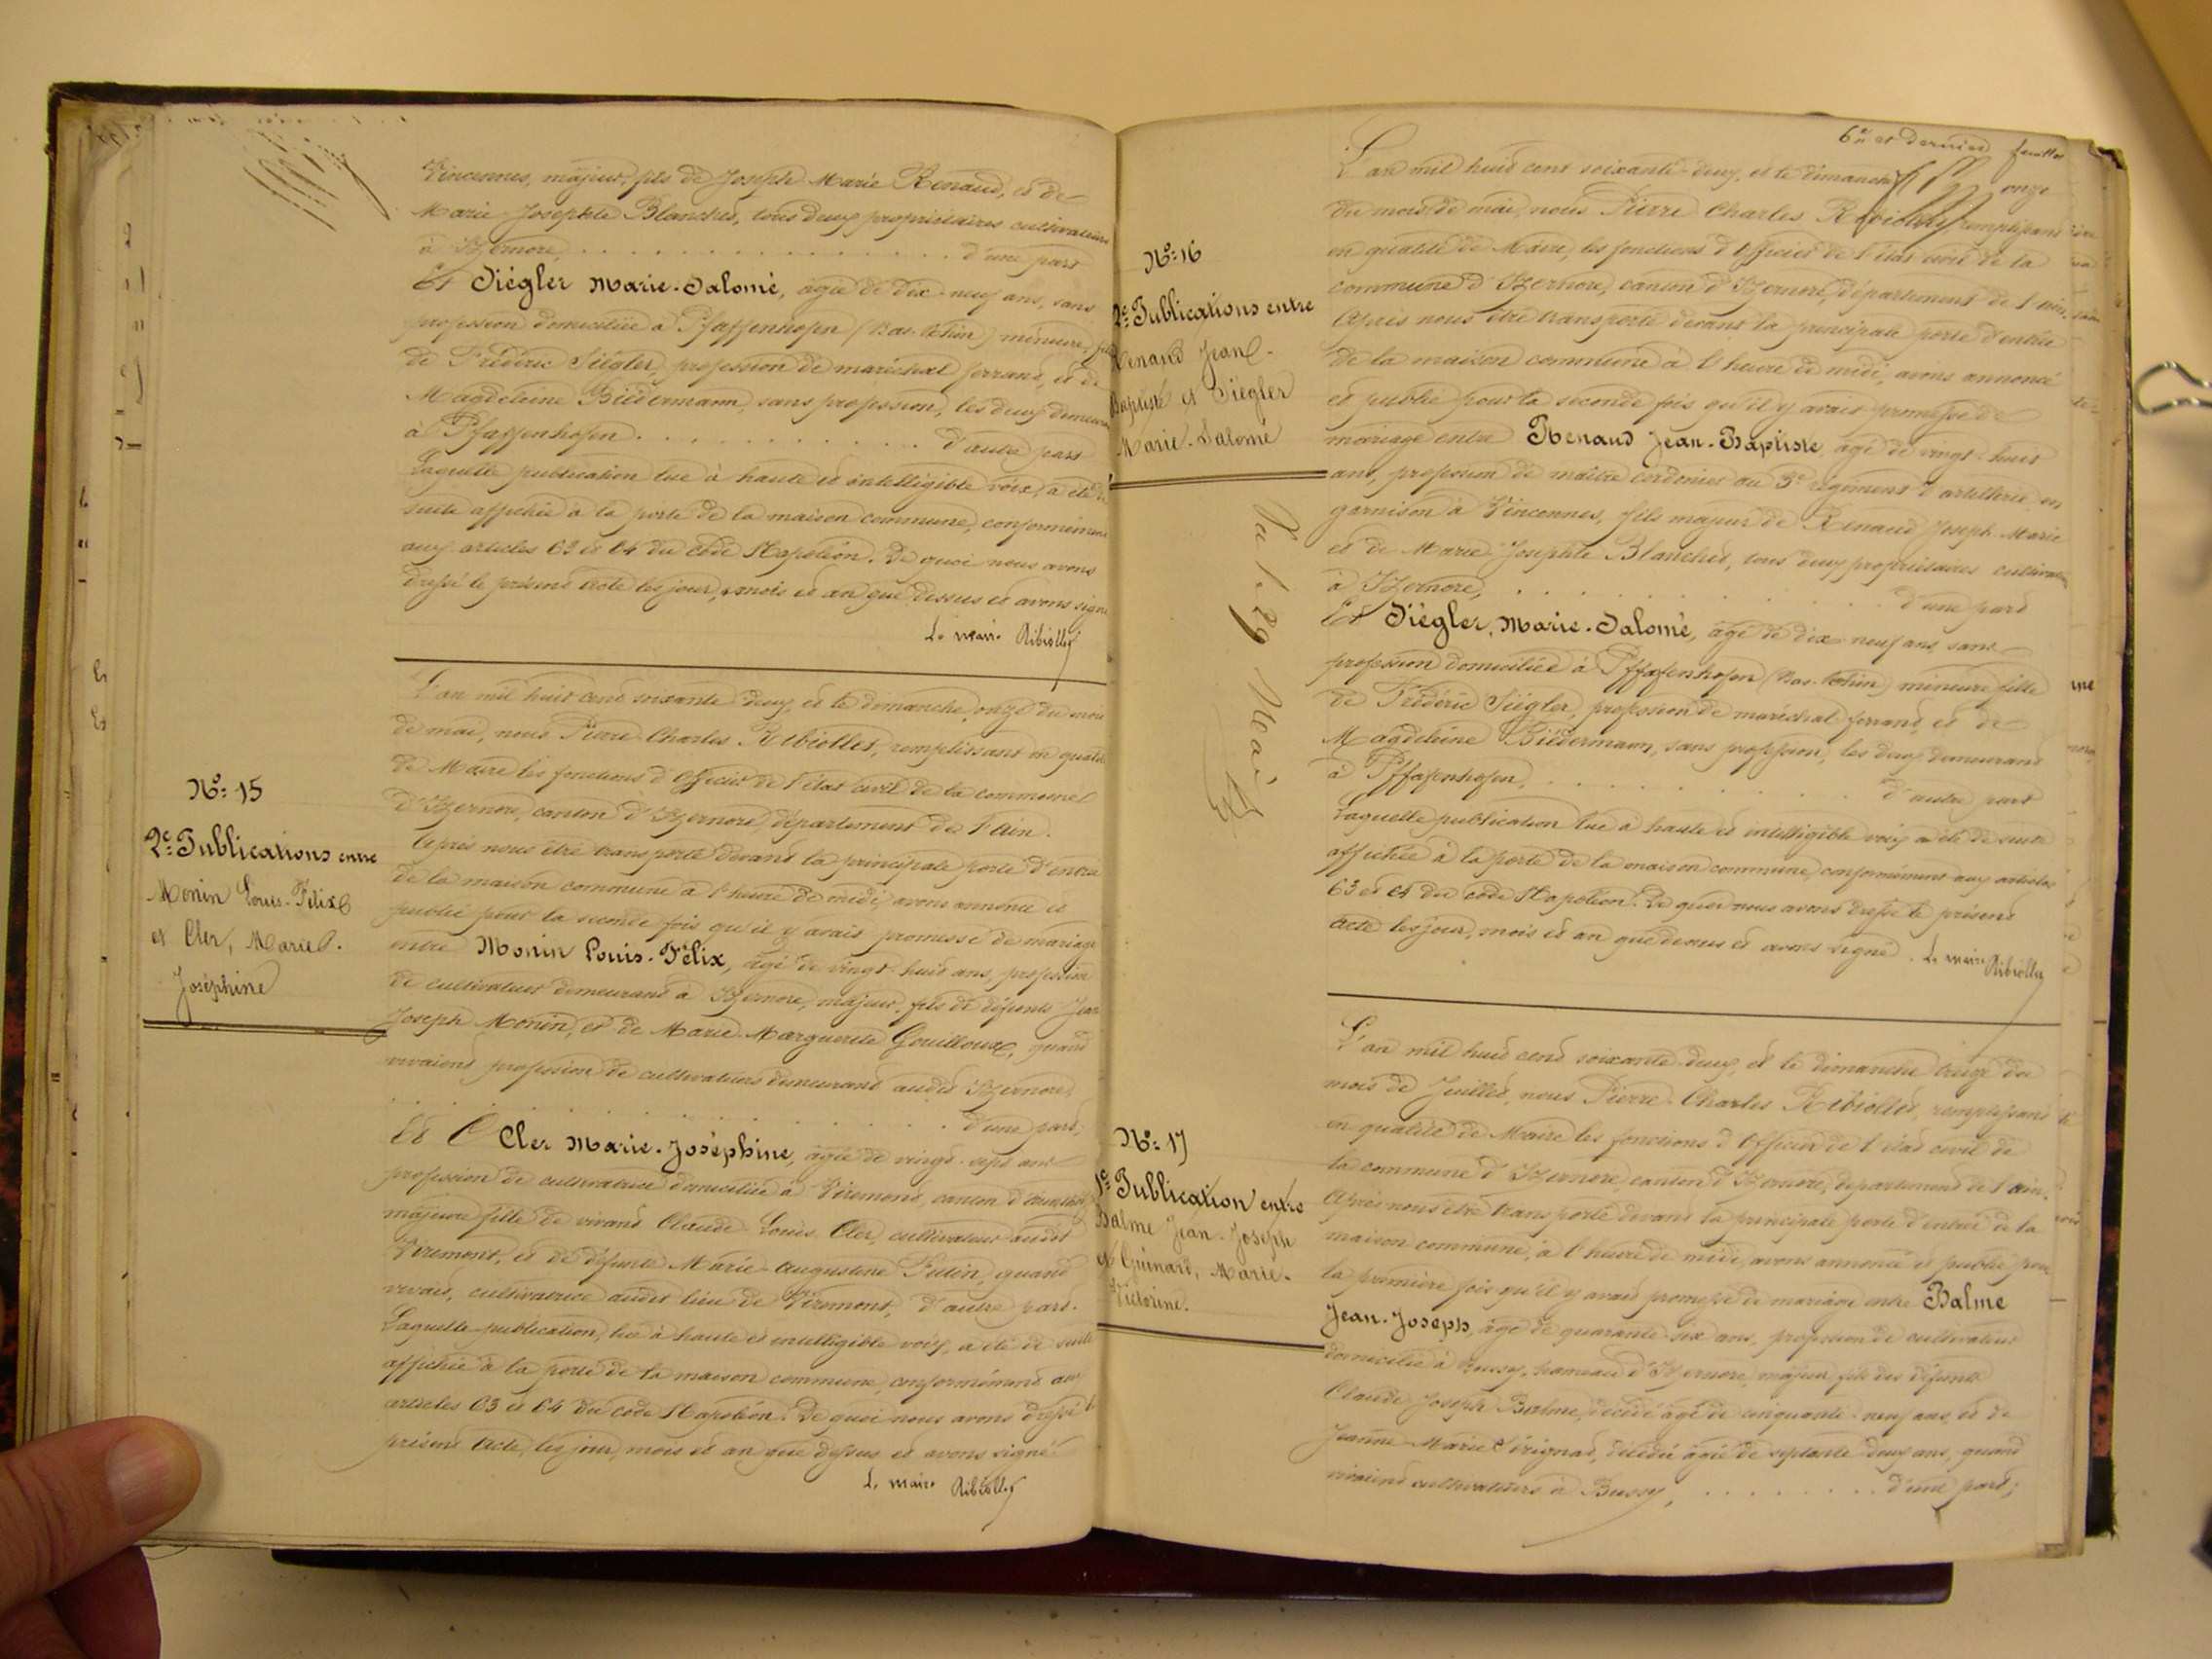 Vincennes, majeur, fils de Joseph Marie Renaud, et de
Marie Josephte Blanchet, tous deux propriétaires cultivateurs
à Izernore, . . . . . . . . . . . . d'une part
Et Siégler Marie-Salomé, agée de dix-neuf ans, sans
profession domiciliée à Pfaffenhofen (Bas-Rhin) mineure, fille
de Frédéric Siégler, profession de maréchal ferrant, et de
Magdeleine Biédermann, sans profession, les deux demeurant
à Pfaffenhofen . . . . . . . . . . . . d'autre part
Laquelle publication lue à haute et intelligible voix, a été de
suite affichée à la porte de la maison commune, conformément
aux articles 63 et 64 du code Napoléon. De quoi nous avons
dressé le présent acte les jour, mois et an que dessus et avons signé
Le maire Ribiollet
N°: 15
2e: Publications entre
Monin Louis-Félix
et Cler, Marie
Joséphine
L'an mil huit cent soixante deux, et le dimanche, onze du mois
de mai, nous Pierre Charles Ribiollet, remplissant en qualité
de Maire les fonctions d'Officier de l'état civil de la commune
d'Izernore, canton d'Izernore, département de l'Ain.
Après nous être transporté devant la principale porte d'entrée
de la maison commune à l'heure de midi, avons annoncé et
publié pour la seconde fois qu'il y avait promesse de mariage
entre Monin Louis-Félix, agé de vingt-huit ans, profession
de cultivateur demeurant à Izernore, majeur, fils de défunts Jean
Joseph Monin, et de Marie-Marguerite Gouilloux, quand
vivaient profession de cultivateurs demeurant audit Izernore,
. . . . . . . . . . . . d'une part,
Et Cler Marie-Joséphine, agée de vingt-sept ans
profession de cultivatrice domiciliée à Viremont, canton d'
majeure fille de vivant Claude Louis Cler, cultivateur audit
Viremont, et de défunte Marie-Augustine Futin, quand
vivait, cultivatrice audit lieu de Viremont, d'autre part.
Laquelle publication, lue à haute et intelligible voix, a été de suite
affichée à la porte de la maison commune, conformément aux
articles 63 et 64 du code Napoléon. De quoi nous avons dressé le
présent acte, les jour, mois et an que dessus et avons signé
Le maire Ribiollet
6e et dernier feuillet
N°: 16
2e: Publications entre
Renaud Jean-
Baptiste et Siégler
Marie-Salomé
L'an mil huit cent soixante-deux, et le dimanche onze
du mois de mai, nous Pierre Charles Ribiollet, remplissant
en qualité de Maire, les fonctions d'Officier de l'état civil de la
commune d'Izernore, canton d'Izernore, département de l'Ain.
Après nous être transporté devant la principale porte d'entrée
de la maison commune à l'heure de midi, avons annoncé
et publié pour la seconde fois qu'il y avait promesse de
mariage entre Renaud Jean-Baptiste agé de vingt-huit
ans, profession de maître cordonier au 3e régiment d'artillerie en
garnison à Vincennes, fils majeur de Renaud Joseph-Marie
et de Marie Josephte Blanchet, tous deux propriétaires cultivateurs
à Izernore, . . . . . . . . . . . . d'une part
Et Siégler, Marie-Salomé, agé de dix-neuf ans, sans
profession domiciliée à Pffafenhofen (Bas-Rhin) mineure fille
de Frédéric Siégler, profession de maréchal ferrant, et de
Magdeleine Biédermann, sans profession, les deux demeurant
à Pffafenhofen, . . . . . . . . . . . . d'autre part
Laquelle publication lue à haute et intelligible voix a été de suite
affichée à la porte de la maison commune, conformément aux articles
63 et 64 du code Napoléon. De quoi nous avons dressé le présent
acte les jour, mois et an que dessus et avons signé. Le maire Ribiollet
29 Mai
N°: 17
1e: Publication entre
Balme Jean-Joseph
et Guinard, Marie-
Victorine.
L'an mil huit cent soixante-deux, et le dimanche treize du
mois de Juillet, nous Pierre-Charles Ribiollet, remplissant
en qualité de Maire les fonctions d'Officier de l'état civil de
la commune d'Izernore, canton d'Izernore, département de l'Ain.
Après nous être transporté devant la principale porte d'entrée de la
maison commune, à l'heure de midi, avons annoncé et publié pour
la première fois qu'il y avait promesse de mariage entre Balme
Jean-Joseph, agé de quarante-six ans, profession de cultivateur
domicilié à Bussy, hameau d'Izernore, majeur fils des défunts
Claude Joseph Balme, décédé agé de cinquante-neuf ans, et de
Jeanne-Marie Sérignat, décédée agée de septante deux ans, quand
vivaient cultivateurs à Bussy, . . . . . . . . . d'une part;